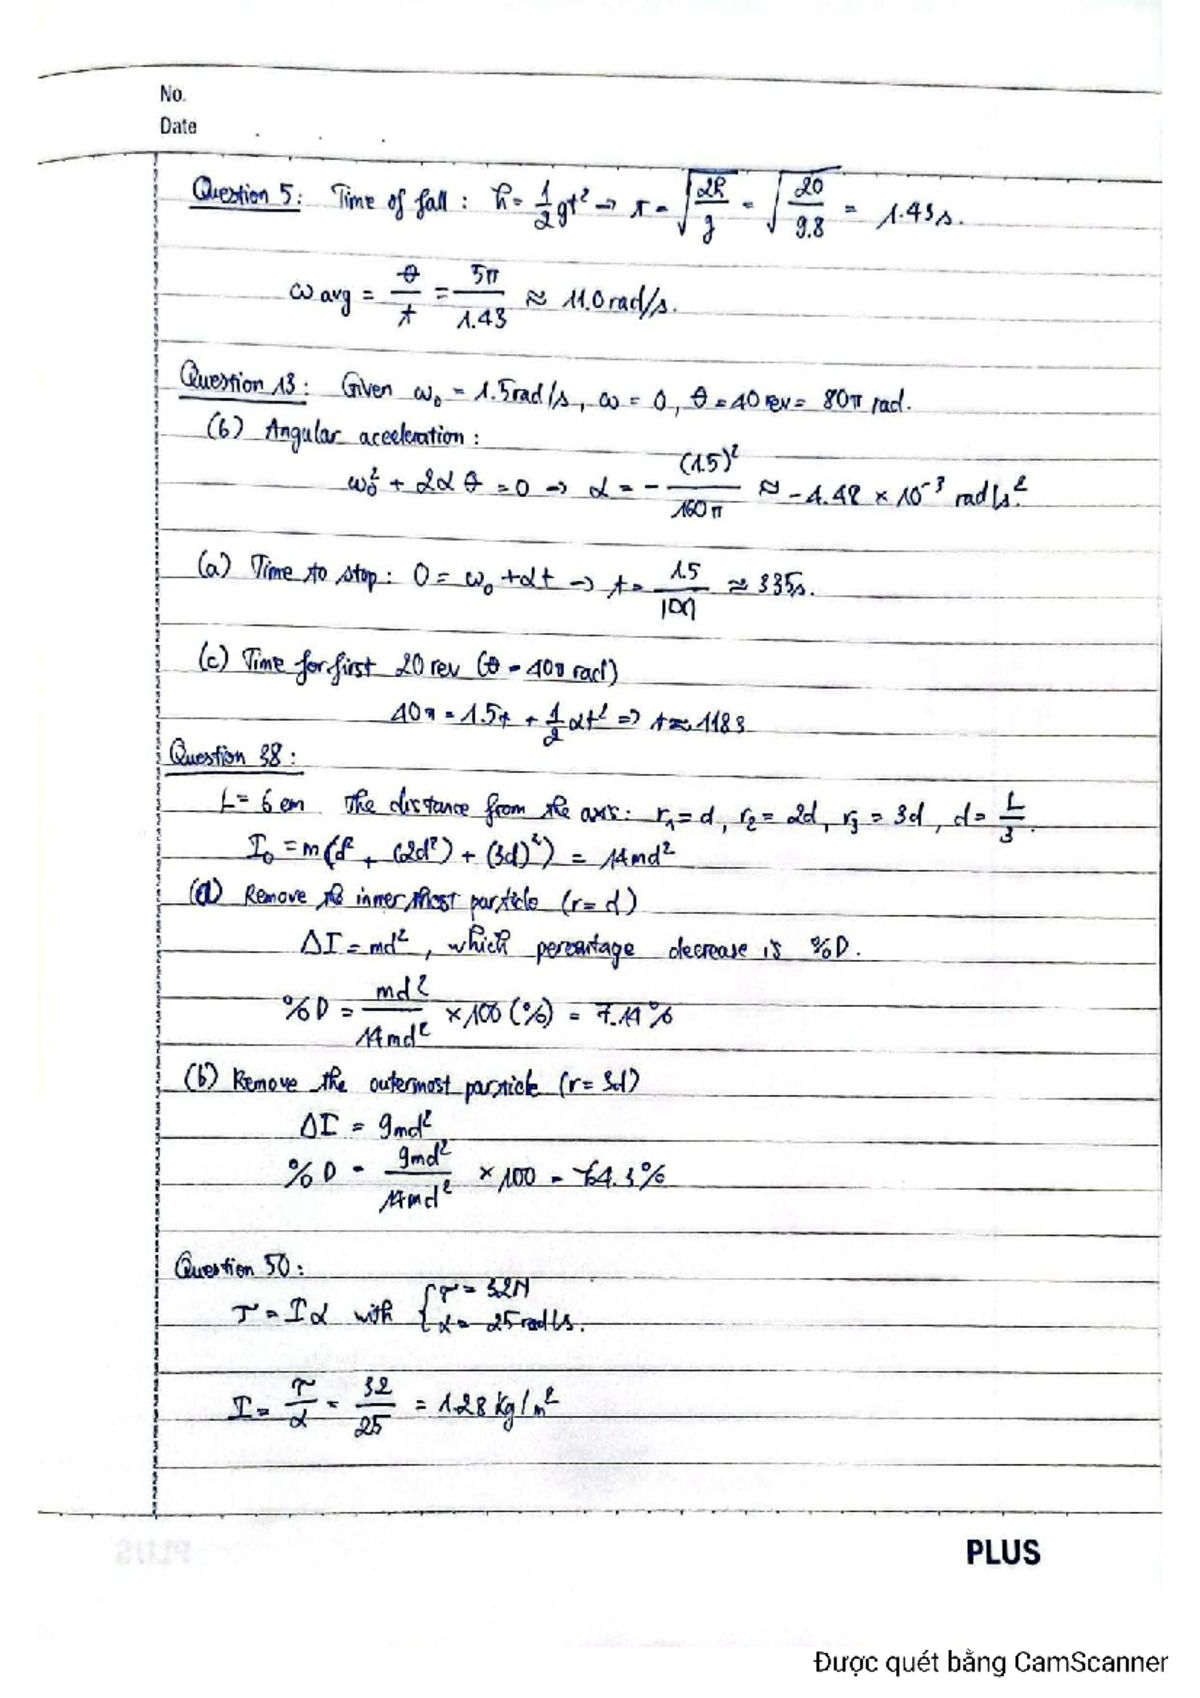 No.
Date
Question 5: Time of fall: h = 1/2 gt² → t = √(2h/g) = √(20/9.8) = 1.43s.
ω avg = θ/t = 5π/1.43 ≈ 11.0 rad/s.
Question 13: Given ω₀ = 1.5 rad/s, ω = 0, θ = 40 rev = 80π rad.
(b) Angular aceeleration:
ω₀² + 2αθ = 0 → α = - (1.5)²/160π ≈ -4.48 × 10⁻³ rad/s².
(a) Time to stop: 0 = ω₀ + αt → t = 1.5/ ≈ 335s.
(c) Time for first 20 rev (θ = 40π rad)
40π = 1.5t + 1/2 αt² => t ≈ 118s
Question 38:
L = 6 cm The distance from the axis: r₁ = d, r₂ = 2d, r₃ = 3d, d = L/3.
I₀ = m(d² + (2d²) + (3d)²) = 14md²
(a) Remove the innermost particle (r = d)
ΔI = md², which percentage decrease is %D.
%D = md²/14md² × 100 (%) = 7.14%
(b) Remove the outermost particle (r = 3d)
ΔI = 9md²
%D = 9md²/14md² × 100 = 64.3%
Question 50:
τ = Iα with { τ = 32N
α = 25 rad/s.
I = τ/α = 32/25 = 1.28 kg/m²
PLUS
Được quét bằng CamScanner